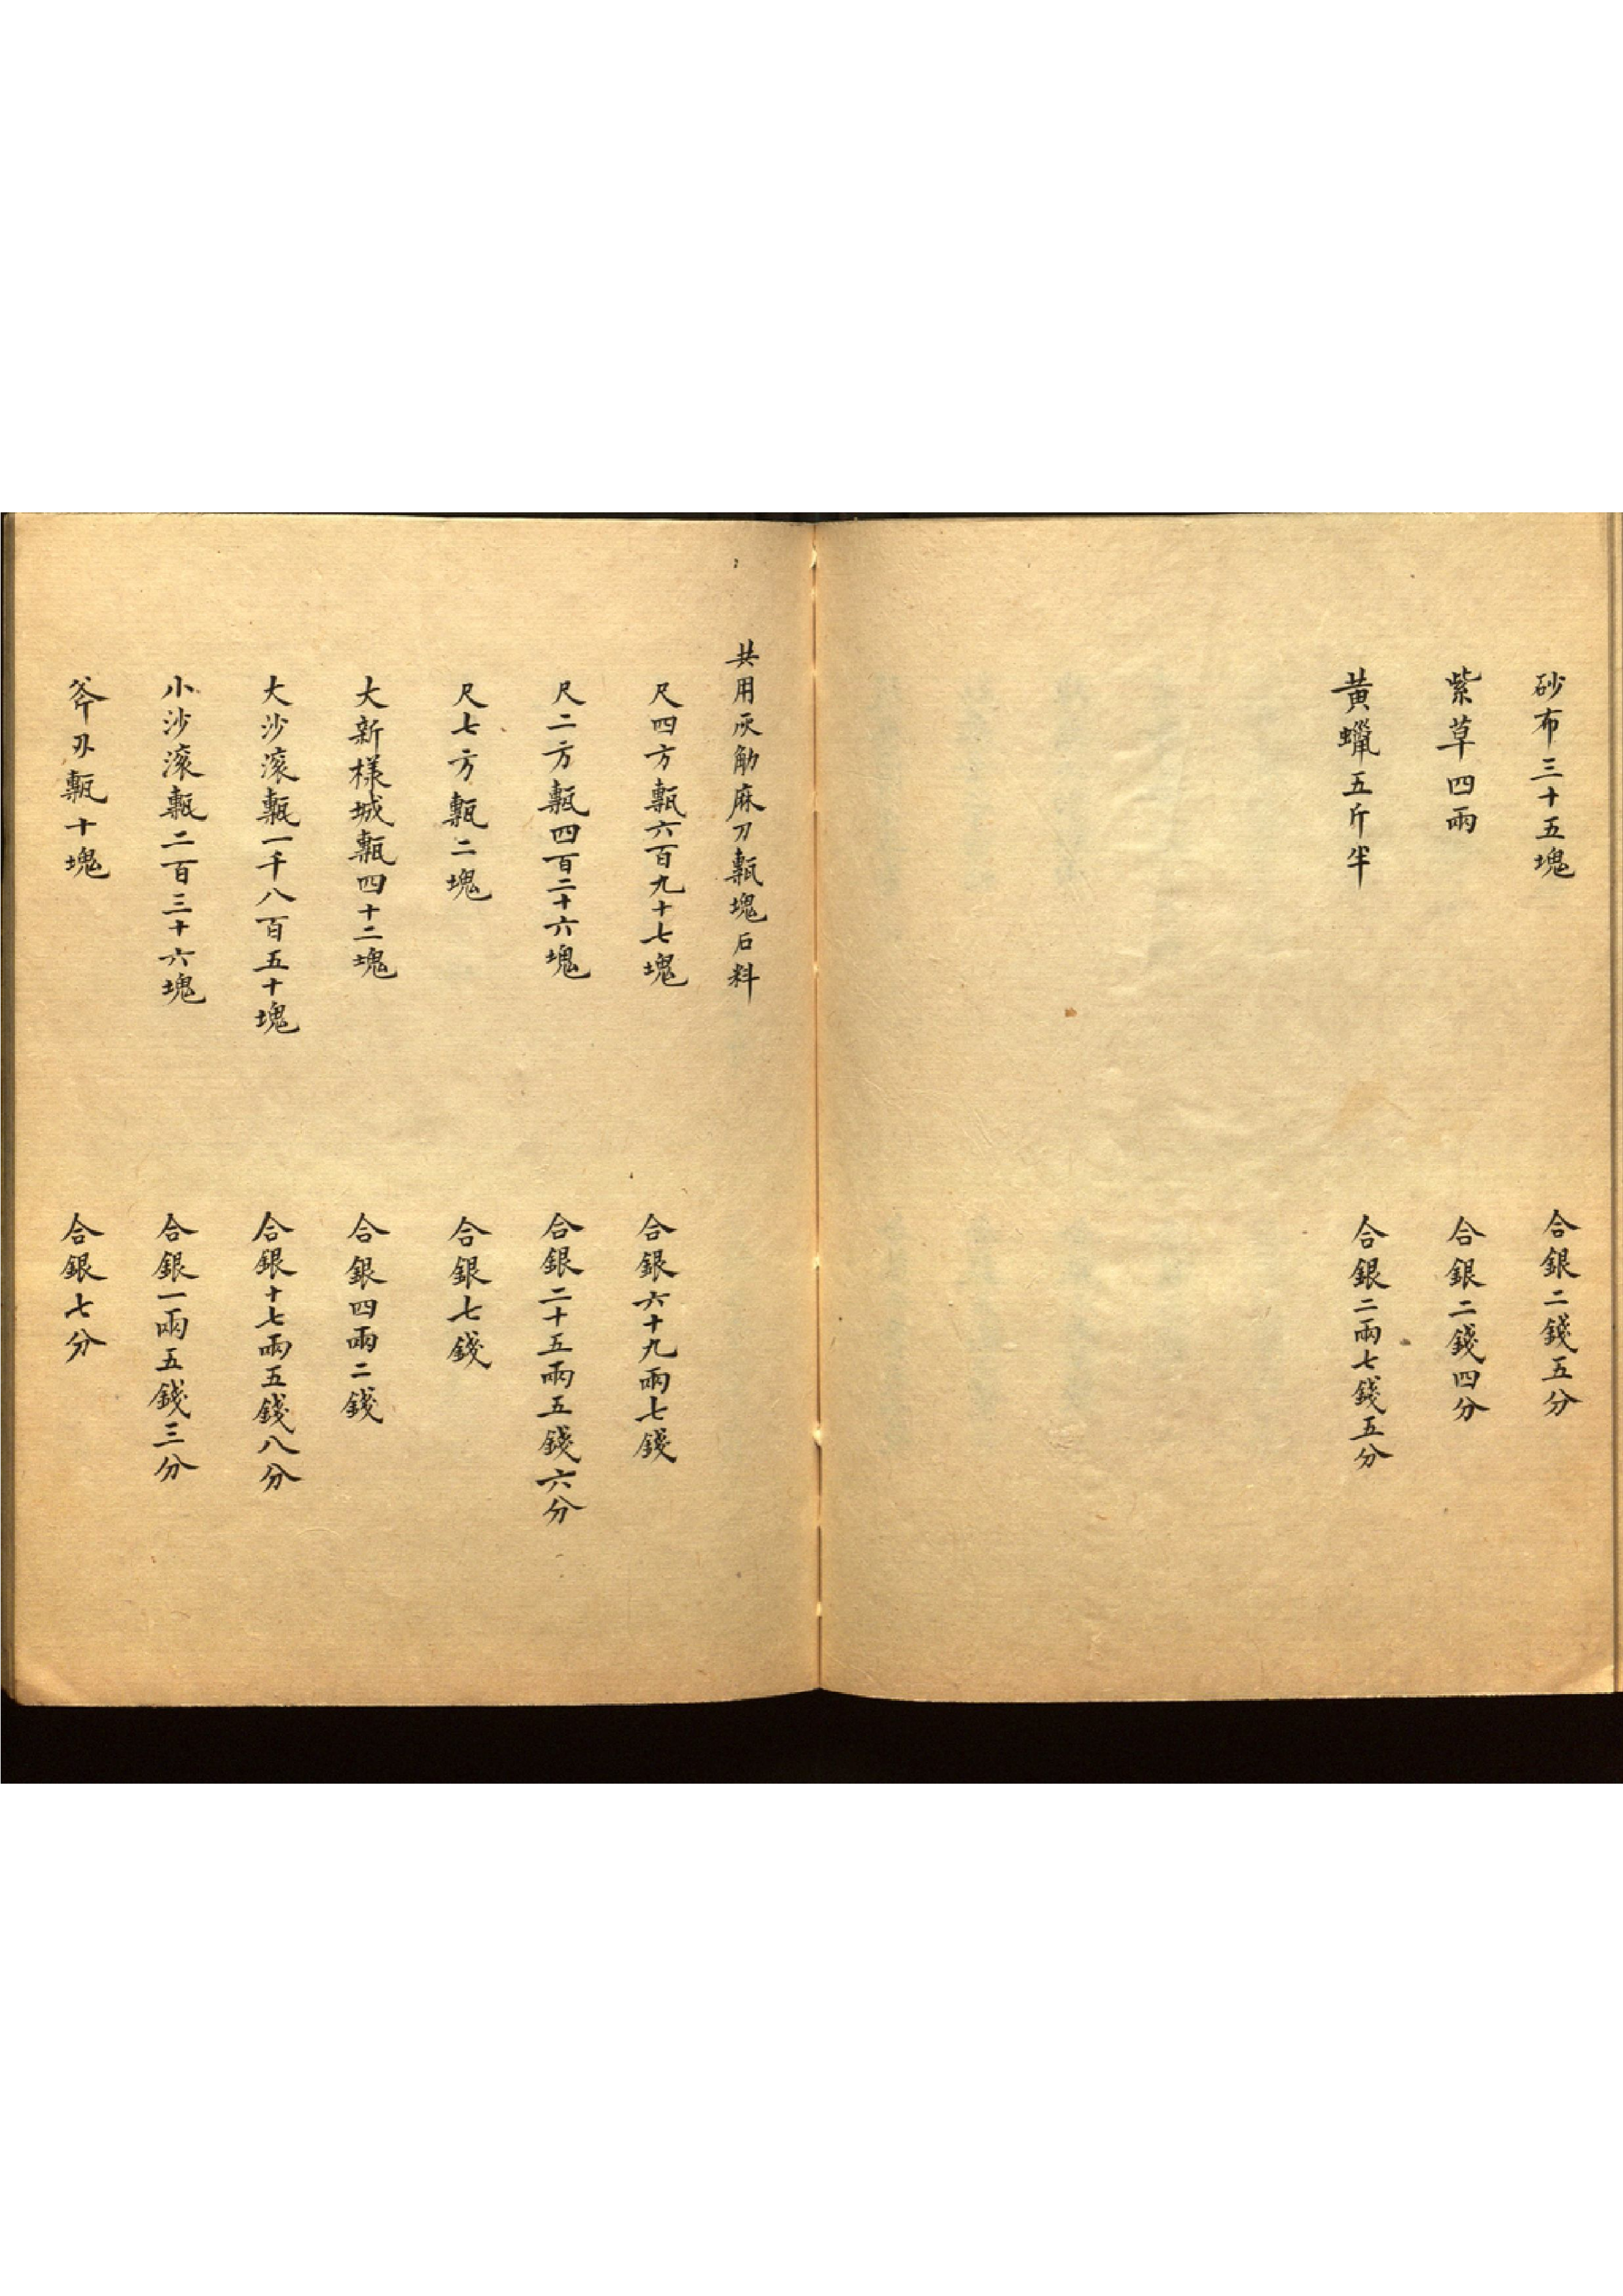 砂布三十五塊 合銀二錢五分
紫草四兩 合銀二錢四分
黃蠟五斤半 合銀二兩七錢五分
共用灰觔麻刀甎塊石料
尺四方甎六百九十七塊 合銀六十九兩七錢
尺二方甎四百二十六塊 合銀二十五兩五錢六分
尺七方甎二塊 合銀七錢
大新樣城甎四十二塊 合銀四兩二錢
大沙滾甎一千八百五十塊 合銀十七兩五錢八分
小沙滾甎二百三十六塊 合銀一兩五錢三分
斧刃甎十塊 合銀七分